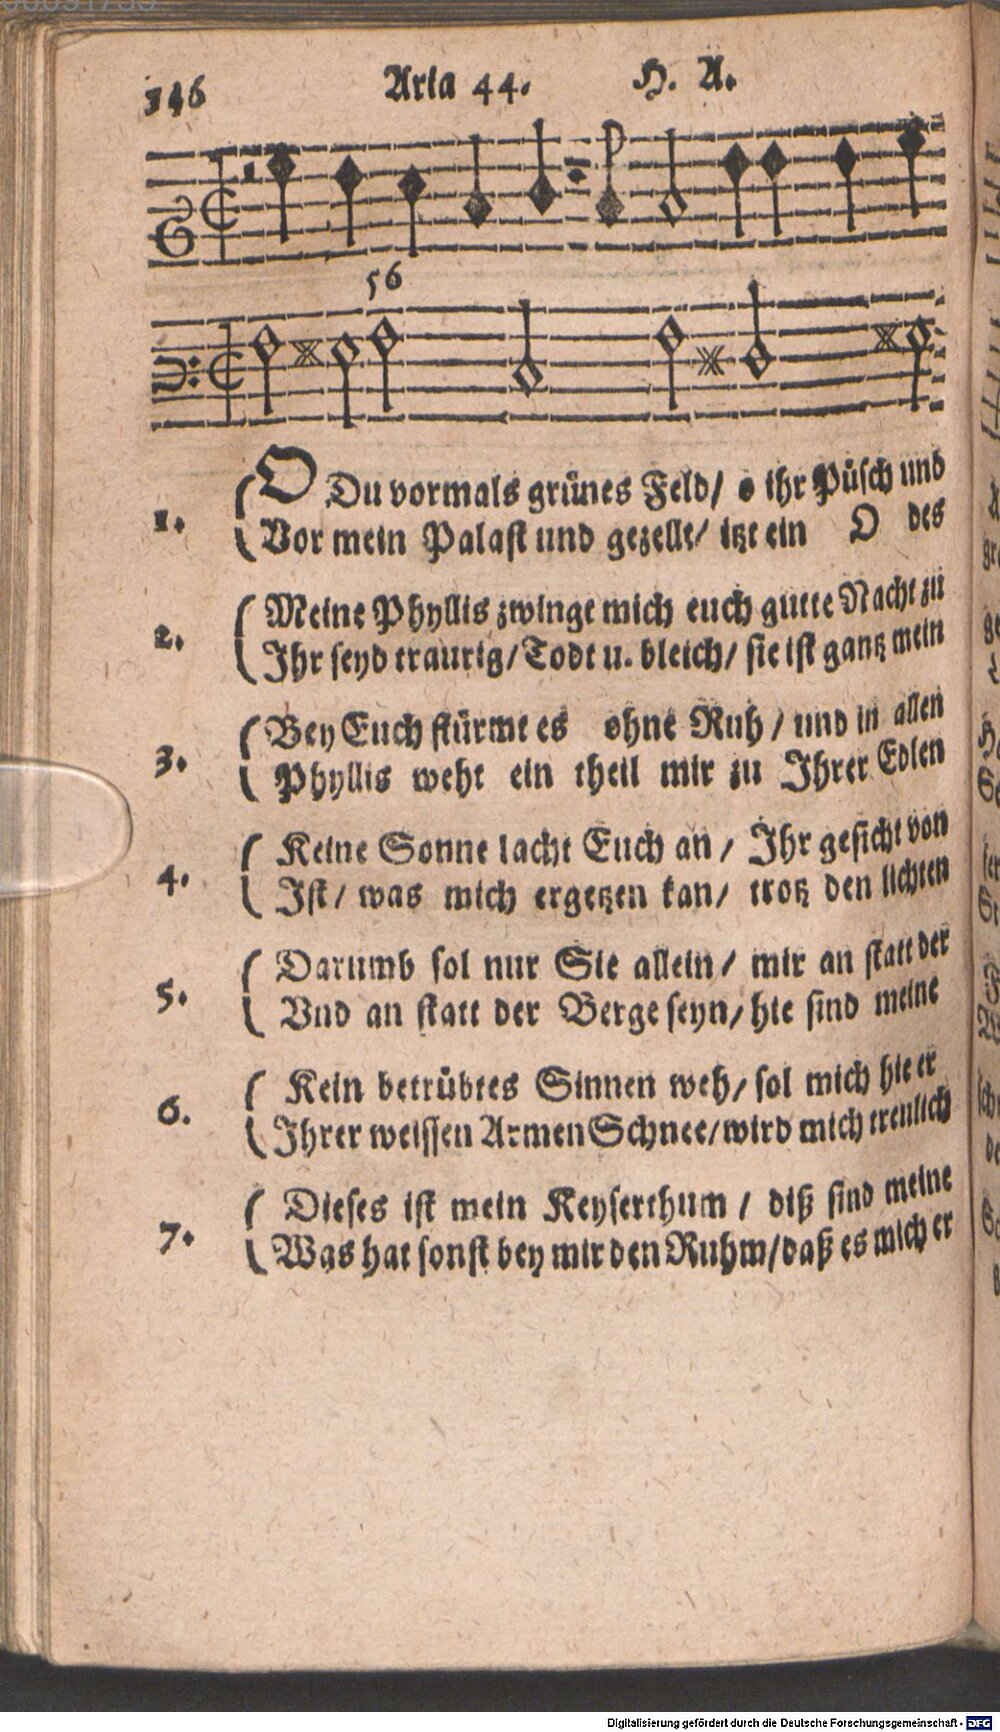 146 Aria 44. H. A.
56
1. O Du vormals grünes Feld/ o ihr Püsch und
Vor mein Palast und gezellt/ itzt ein O des
2. Meine Phyllis zwingt mich euch gutte Nacht zu
Ihr seyd traurig/Todt u. bleich/ sie ist gantz mein
3. Bey Euch stürmt es ohne Ruh/ und in allen
Phyllis weht ein theil mir zu Ihrer Edlen
4. Keine Sonne lacht Euch an/ Ihr gesicht von
Ist/ was mich ergetzen kan/ trotz den lichten
5. Darumb sol nur Sie allein/ mir an statt der
Vnd an statt der Berge seyn/ hie sind meine
6. Kein betrübtes Sinnen weh/ sol mich hie er
Ihrer weissen Armen Schnee/wird mich treulich
7. Dieses ist mein Keyserthum/ diß sind meine
Was hat sonst bey mir den Ruhm/daß es mich er
Digitalisierung gefördert durch die Deutsche Forschungsgemeinschaft - DFG